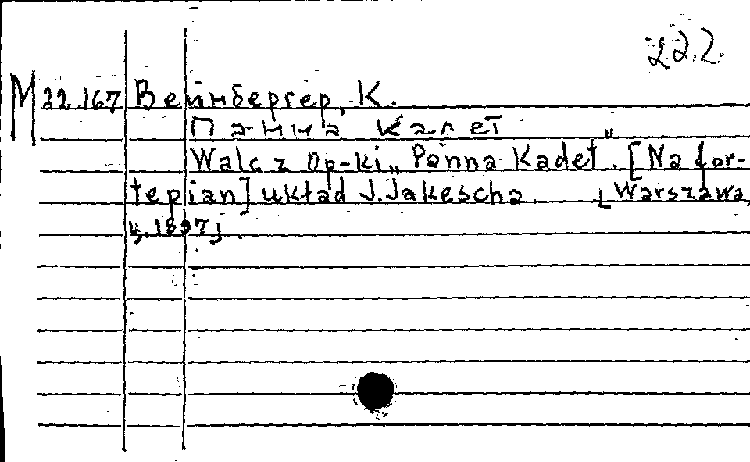 222.
М 22.167 Вейнбергер, К.
Панна кадет
Walc z op-ki „Panna Kadet". [Na for-
tepian] układ J. Jakescha. [Warszawa,
1897].